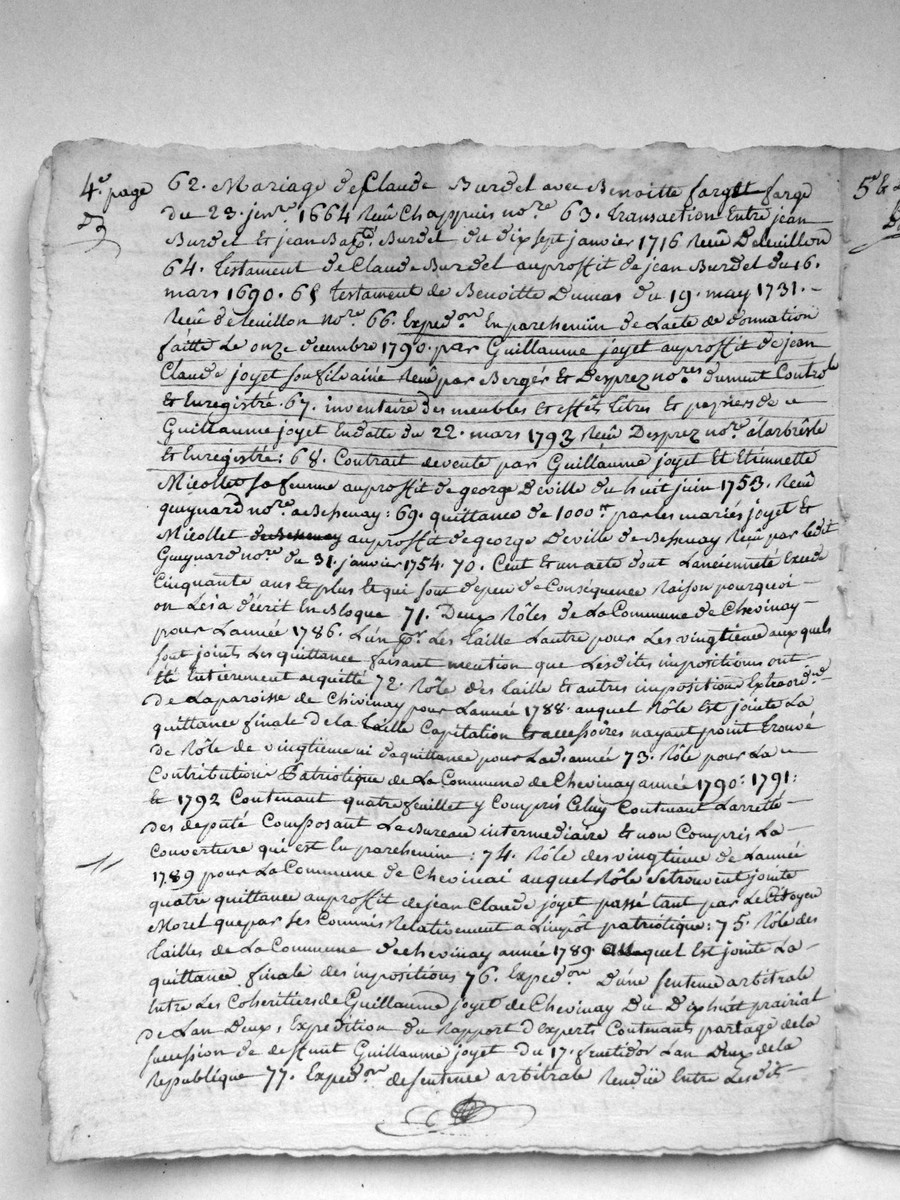 4.e page
62. Mariage de Claude Burdel avec Benoitte farget farge
du 23. jenv.r 1664 Reçû Chappuis no.re 63. transaction Entre jean
Burdel Et jean Bap.te Burdel du dix sept janvier 1716 Reçû Deleuillon
64. testament de Claude Burdel au proffit de jean Burdel du 16.
mars 1690. 65 testament de Benoitte Dumas du 19. may 1731. -
Reçû deleuillon no.re 66. Exped.on En parchemin de Lacte de donnation
faitte Le onze decembre 1790. par Guillaume joyet au proffit de jean
Claude joyet son fils ainé Reçû par Berger Et Desprez no.res dument Controlé
Et Enregistré. 67. inventaire des meubles Et effets titres Et papiers de
Guillaume joyet En datte du 22. mars 1793 Reçû Desprez no.re à larbresle
Et Enregistré: 68. Contrait de vente par Guillaume joyet Et Etiennette
Micollet sa femme au proffit de george Deville du huit juin 1753. Reçû
guynard no.re a Bessenay: 69. quittance de 1000tt par les mariés joyet Et
Micollet de Bessenay au proffit de george Deville de Bessenay Reçû par ledit
Guynard no.re du 31. janvier 1754. 70. Cent Et un acte dont Lancienneté Excede
Cinquante ans Et plus Et qui sont de peu de Conséquence Raison pourquoi -
on Les a décrit En Bloque 71. Deux Rôles de La Commune de Chevinay
pour Lannée 1786. Lun p.r Les taille Lautre pour Les vingtieme aux quels
sont joint Les quittance faisant mention que Lesdites impositions ont
été Entierement acquitté 72. Rôle des taille Et autres imposition Extraord.re
de La paroisse de Chivinay pour Lannée 1788. auquel Rôle Est jointe La
quittance finale de la taille Capitation Et accessoires nayant point trouvé
de Rôle de vingtieme ni de quittance pour Lad. année 73. Rôle pour La
Contribution Patriotique de La Commune de Chevinay année 1790: 1791:
Et 1792 Contenant quatre feuillet y Compris Celuy Contenant Larretté -
des deputé Composant Le Bureau intermediaire Et non Compris La -
Couverture qui est En parchemin: 74. Rôle des vingtieme de Lannée
1789 pour La Commune de Chevinai auquel Rôle se trouvent jointe
quatre quittance au proffit de jean Claude joyet passé tant par Le Citoyen
Morel que par ses Commis Relativement a Limpôt patriotique: 75. Rôle des
tailles de La Commune de chevinay année 1789 auquel Est jointe La -
quittance finale des impositions 76. Exped.on D'une sentence arbitrale
Entre Les Coheritiers de Guillaume joyet de Chevinay Du Dix huit prairial
de Lan Deux, Expédition du Rapport D'experts Contenant partage de la
succession de deffunt Guillaume joyet du 17. fructidor Lan Deux de la
Republique 77. Exped.on de sentence arbitrale Rendüe Entre Lesdits
5.e &